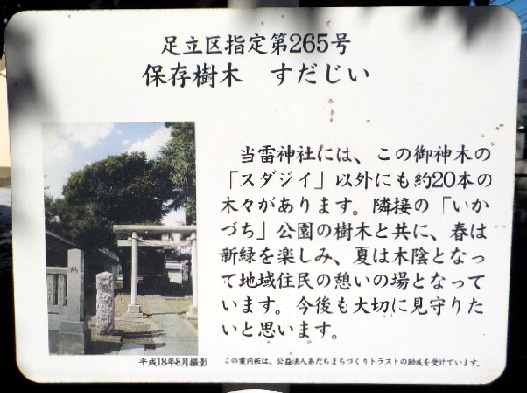 足立区指定第265号
保存樹木 すだじい
当雷神社には、この御神木の
「スダジイ」以外にも約20本の
木々があります。隣接の「いか
づち」公園の樹木と共に、春は
新緑を楽しみ、夏は木陰となっ
て地域住民の憩いの場となって
います。今後も大切に見守りた
いと思います。
平成18年8月撮影
この案内板は、公益法人あだちまちづくりトラストの助成を受けています。